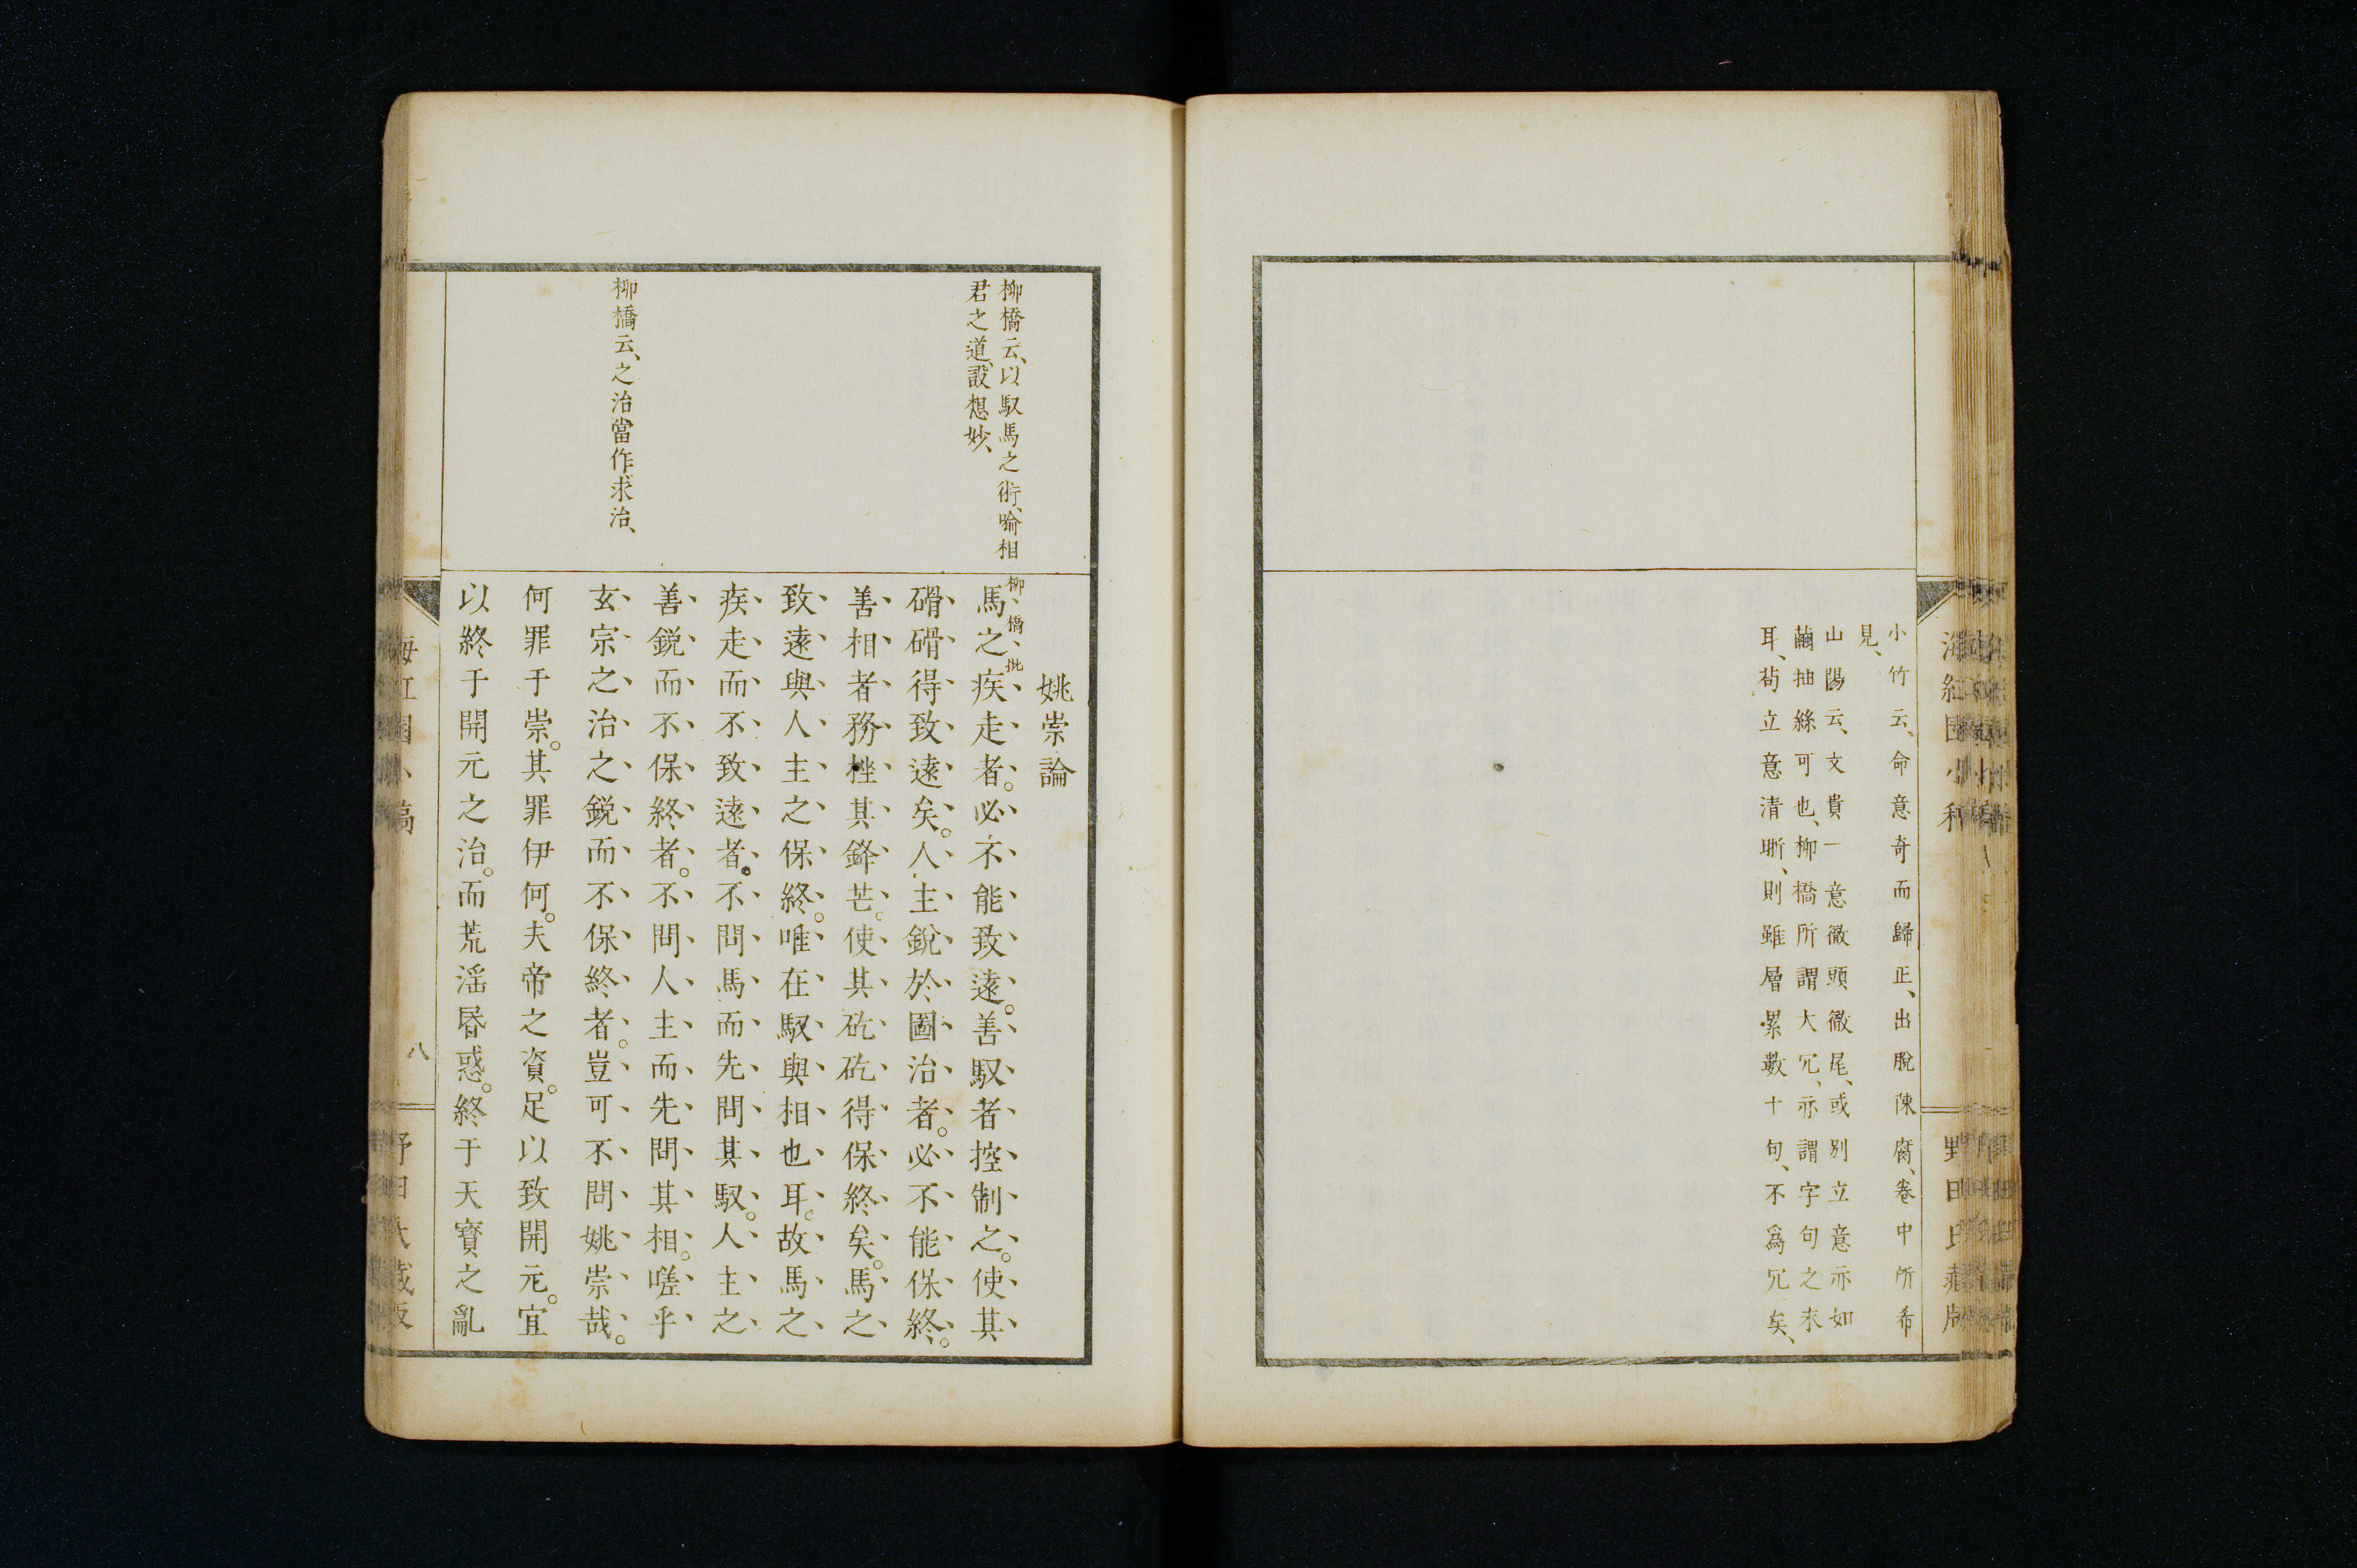 小竹云、命意奇而歸正、出脫陳腐、卷中所希
見、
山陽云、文貴一意徹頭徹尾、或別立意亦如
繭抽絲可也、柳橋所謂大冗、亦謂字句之末
耳、苟立意清晰、則雖層累數十句、不爲冗矣、
柳橋云、以馭馬之術、喻相
君之道、設想妙、
柳橋云、之治當作求治、
姚崇論
柳橋批
馬之疾走者。必不能致遠。善馭者控制之。使其
磆磆得致遠矣。人主銳於圖治者。必不能保終。
善相者務挫其鋒芒。使其矻矻得保終矣。馬之
致遠與人主之保終。唯在馭與相也耳。故馬之
疾走而不致遠者。不問馬而先問其馭。人主之
善銳而不保終者。不問人主而先問其相。嗟乎
玄宗之治之銳而不保終者。豈可不問姚崇哉。
何罪于崇。其罪伊何。夫帝之資。足以致開元。宜
以終于開元之治。而荒淫昏惑。終于天寶之亂
八